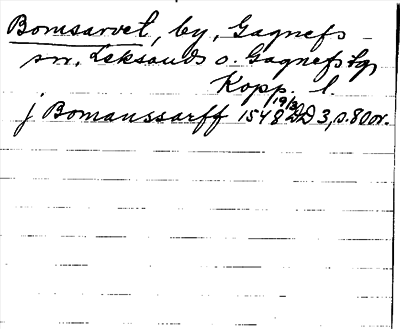 Bomsarvet, by, Gagnefs
sn, Leksands o. Gagnefs tgs
Kopp. l.
j Bomanssarff 1548 19/3 DD 3, s. 80 or.